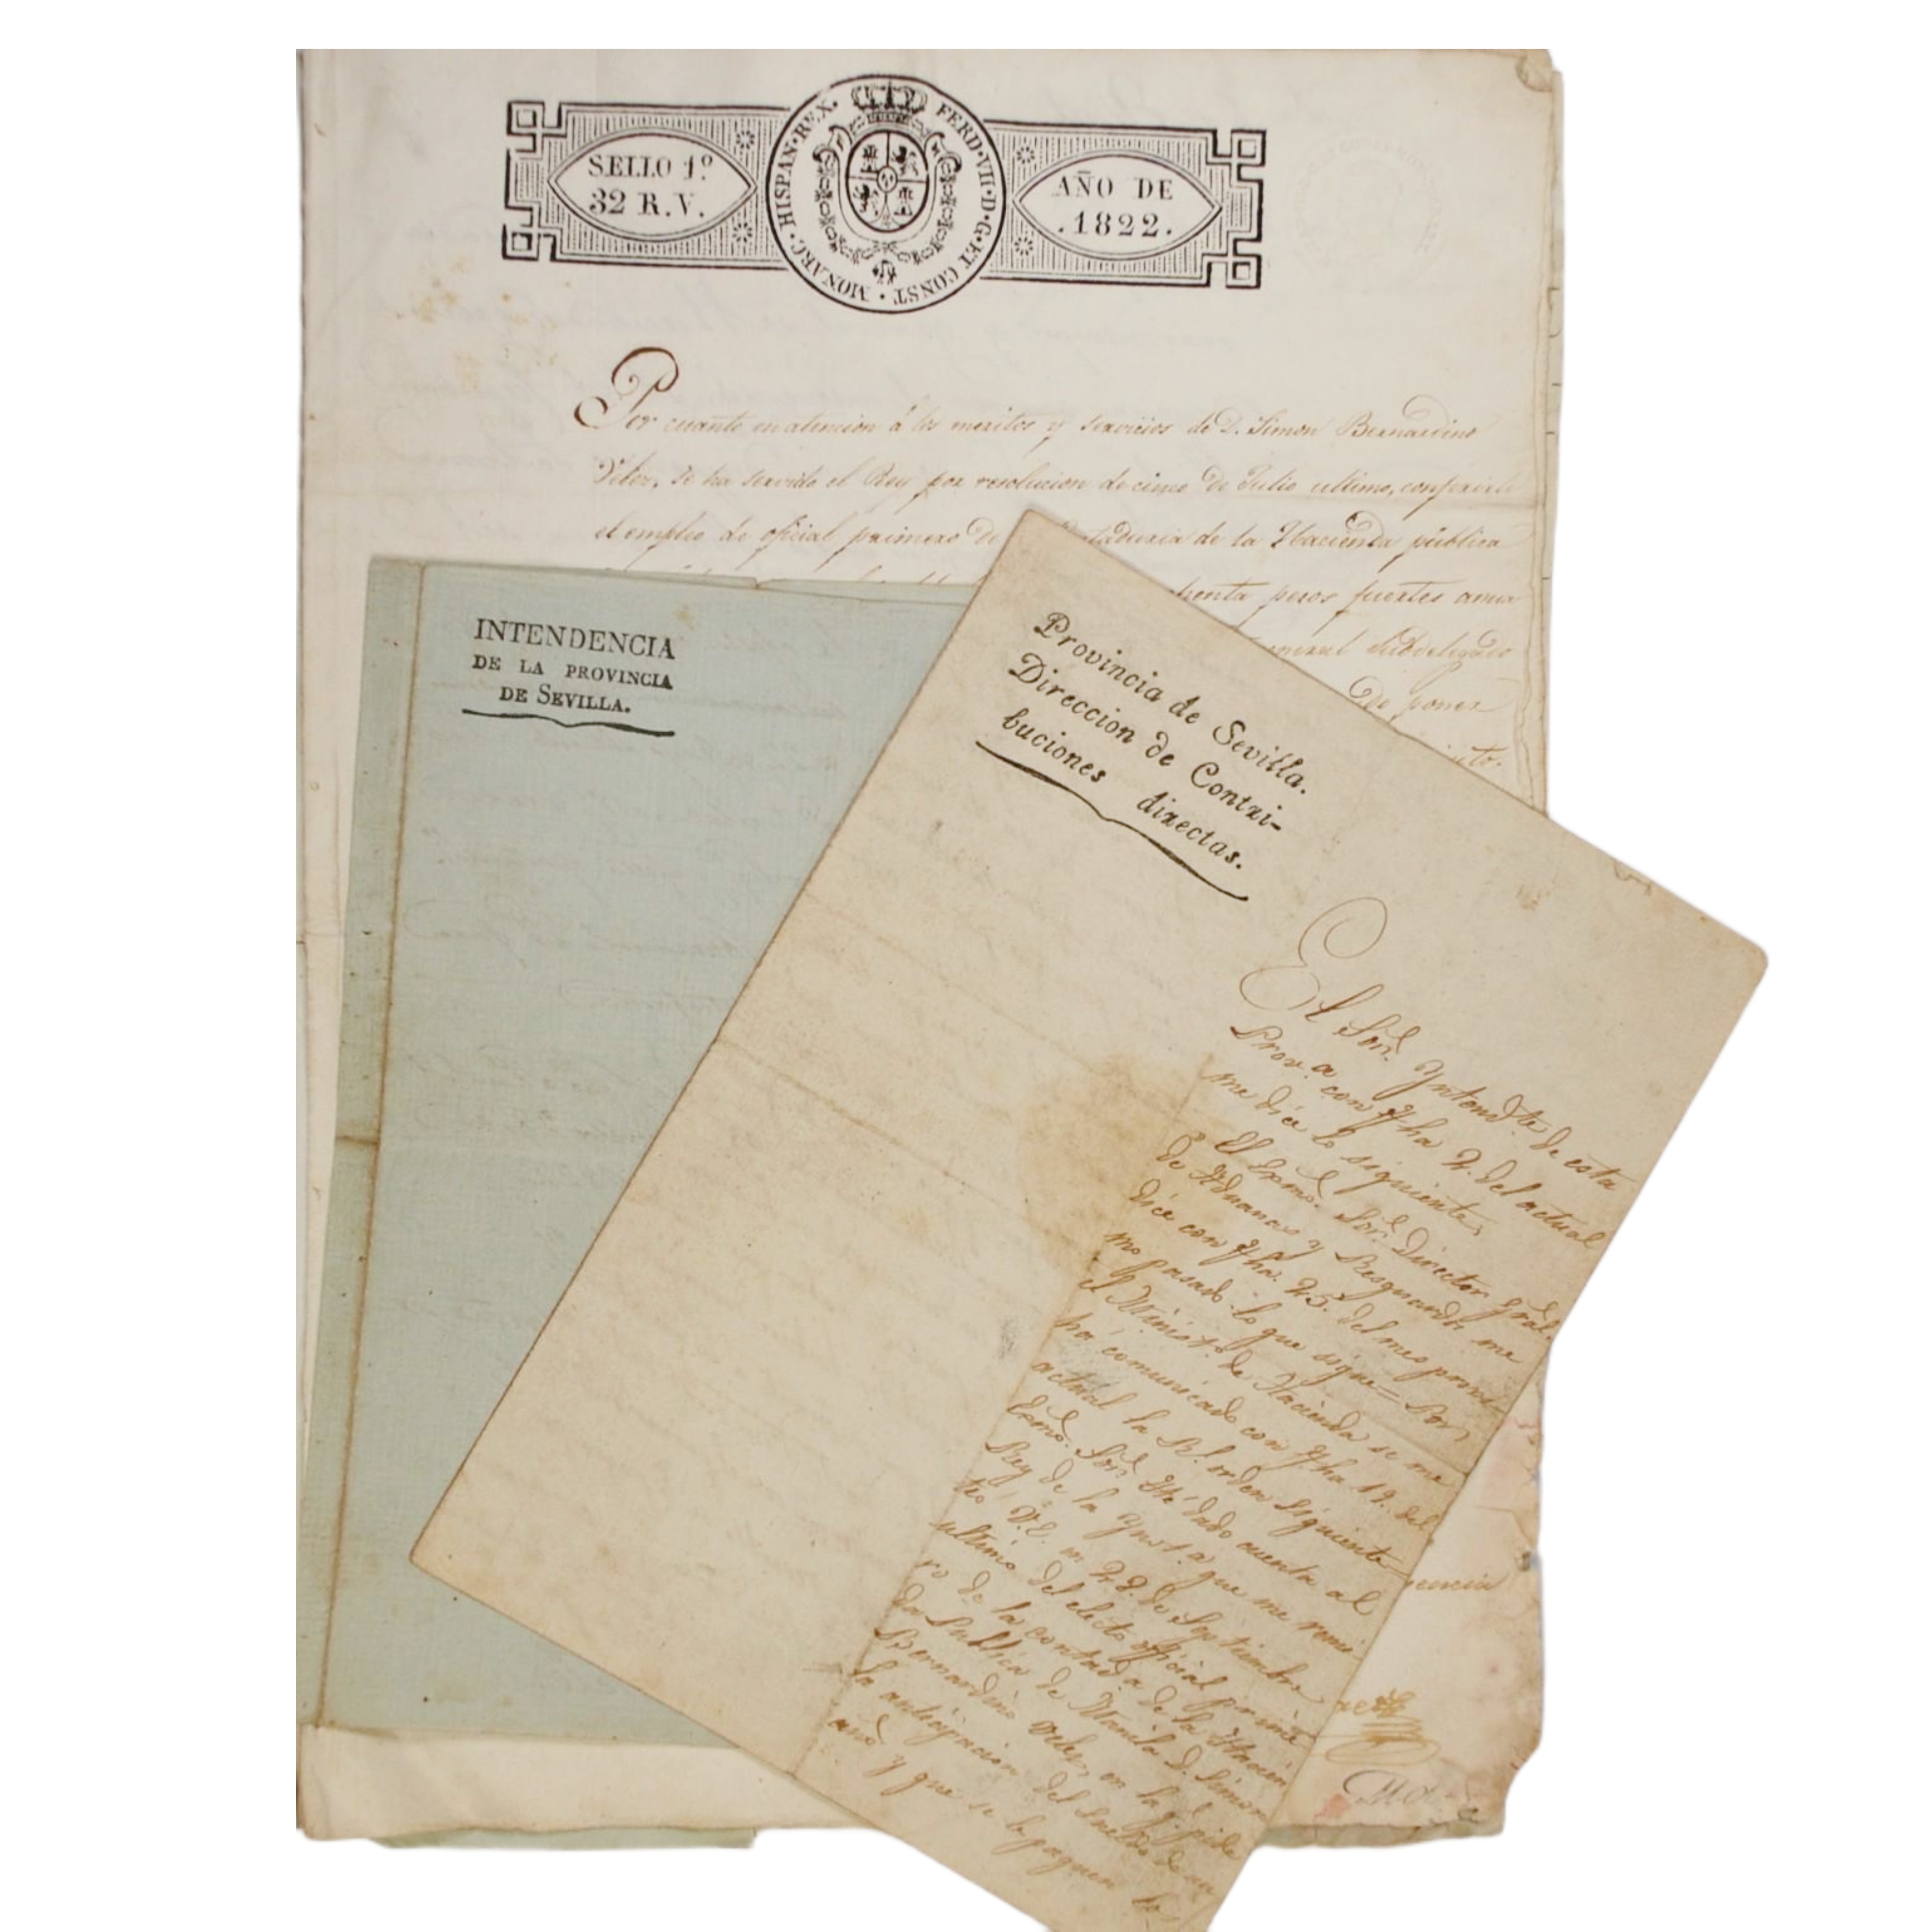 SELLO 1º
32 R.V.
HISPAN·REX. FERD·VII·D·G·ET CONST·MONARC·
AÑO DE
.1822.
Por cuanto en atencion á los meritos y servicios de D. Simon Bernardino
Velez, se ha servido el Rey por resolucion de cinco de Julio ultimo, conferirle
el empleo de oficial primero de taduria de la Hacienda pública
henta pesos fuertes anua
eneral Subdelegado
de poner
INTENDENCIA
DE LA PROVINCIA
DE SEVILLA.
Provincia de Sevilla.
Direccion de Contri-
buciones directas.
El Sor. Yntend.te de esta
Prov.a con fha 2. del actual
me dice lo siguiente,
El Exmo. Sor. Director gral.
de Aduanas y Resguardos me
dice con fha. 25. del mes proxi-
mo pasado lo que sigue= Por
el Minist.o de Hacienda se me
há comunicado con fha 19. del
actual la Rl. orden siguiente
Exmo. Sor. He dado cuenta al
Rey de la Ynst.a que me remi-
tió V.E. en 28. de Septiembre
ultimo del electo oficial prime-
ro de la contad.a de la Hacien
da Publica de Manila D. Simon
Bernardino Velez, en la q.e pide
la anticipacion del sueldo de un
año y que se le paguen los